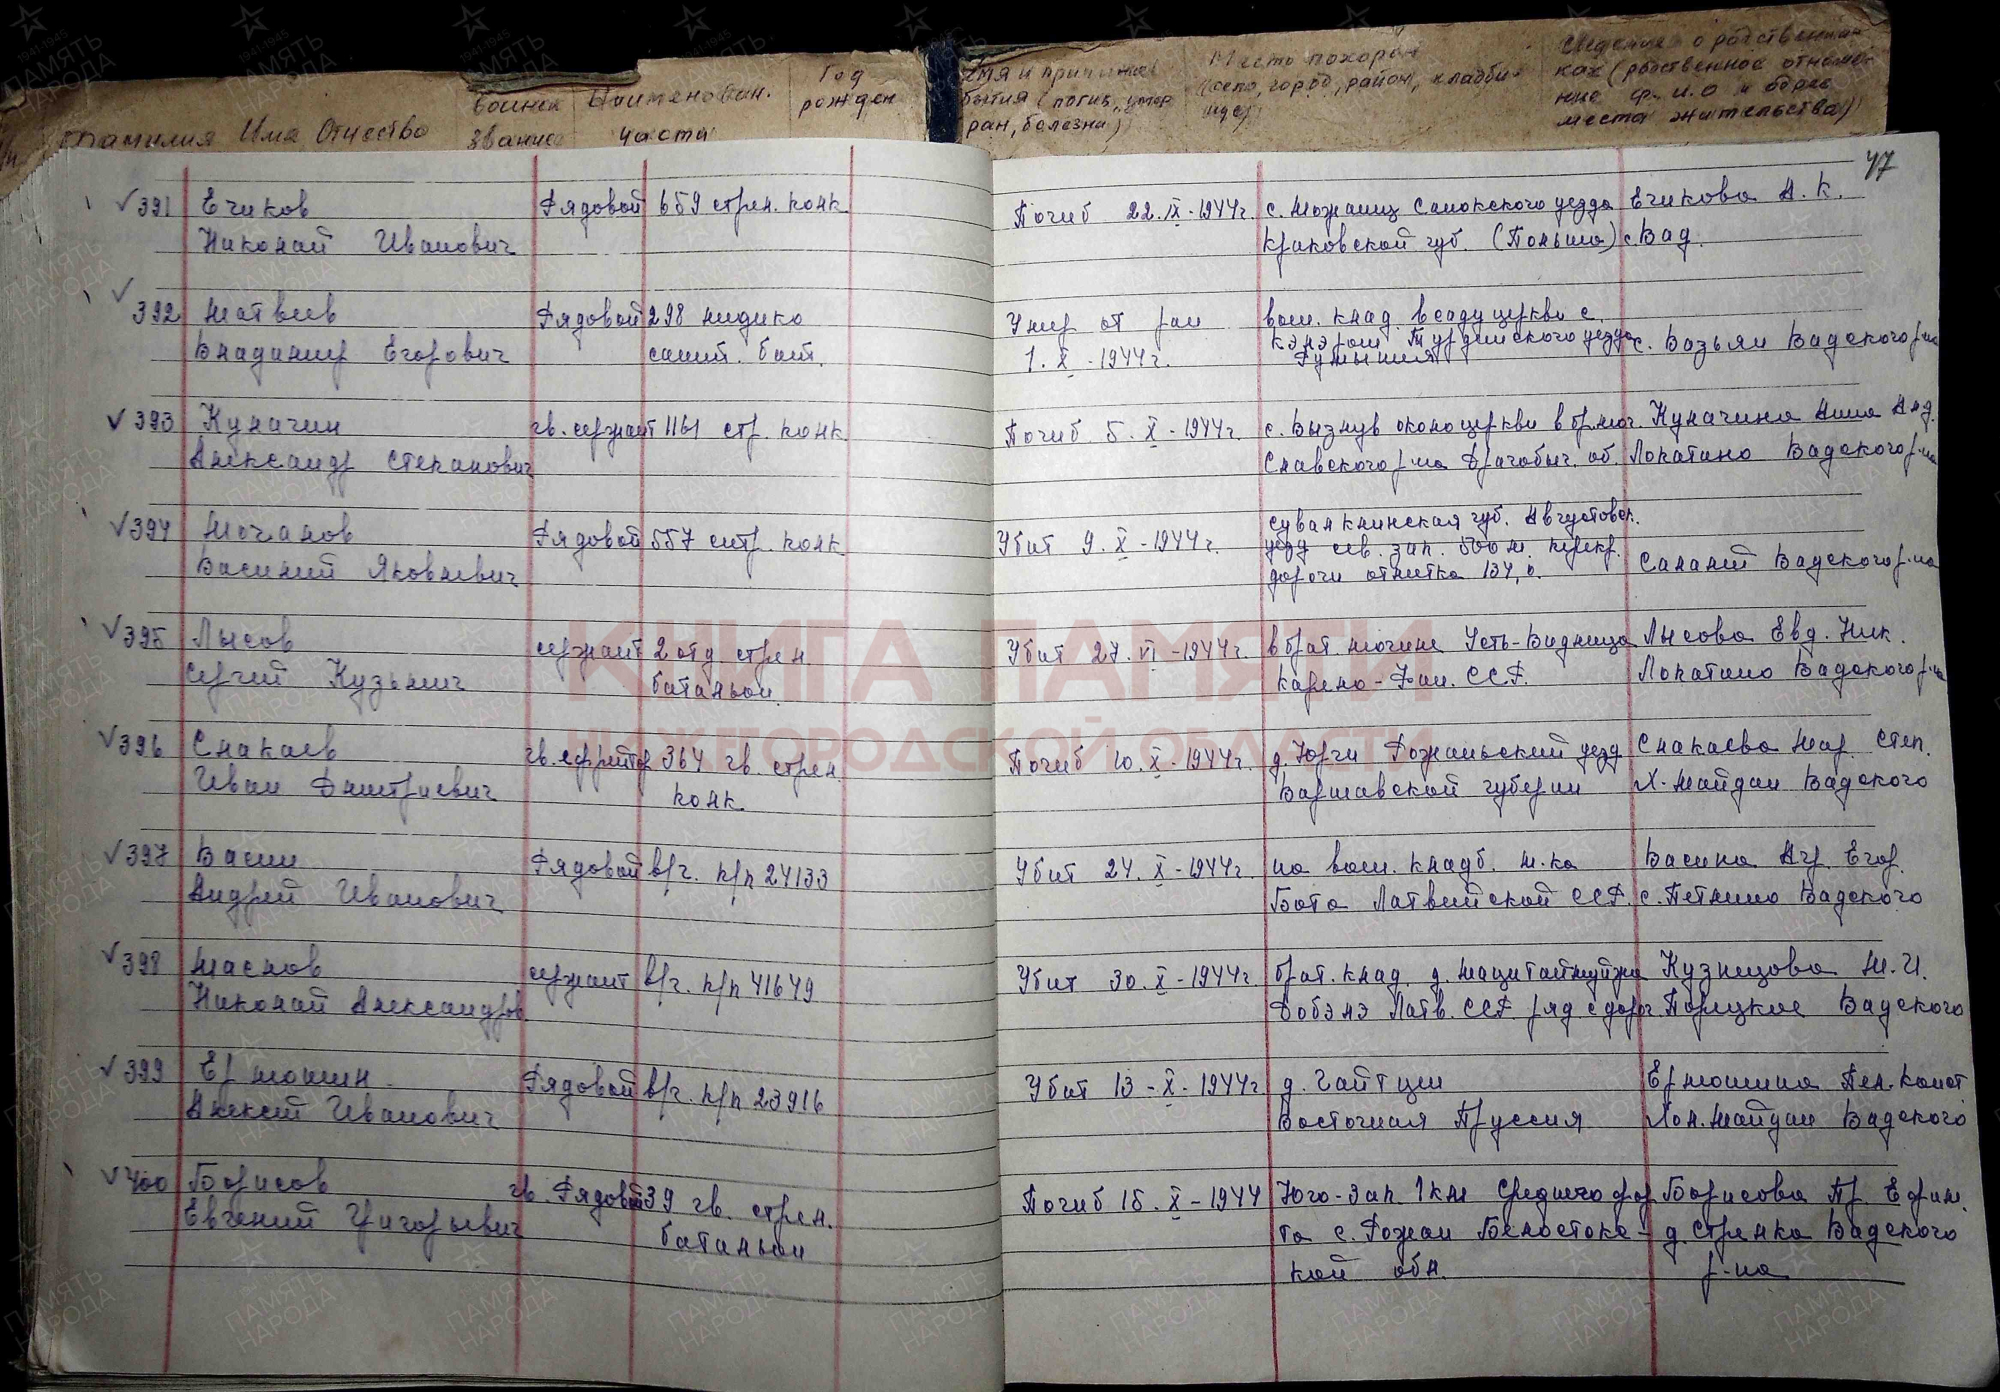 Фамилия Имя Отчество
Воинск звание
Наименован. части
Год рожден
бытия (погиб, умер
ран, болезни)
Место похорон
(село, город, район, кладби-
ще)
Сведения о родственни
ках (родственное отноше-
ние ф.и.о и адрес
места жительства)
47
391 Ечиков Рядовой 659 стрел. полк. Погиб 22.IX-1944г. с. Санокского уезда Ечикова А. К.
Николай Иванович Краковской губ. (Польша) с. Вад.
392 Матвеев Рядовой 298 медико Умер от ран воен. клад. в саду церкви с.
Владимир Егорович санит. бат. 1.X-1944г. Турдейского уезда Румыния с. Возьян Вадского р-на
393 Кулагин гв. сержант 1161 стр. полк. Погиб 5.X-1944г. с. Вызлув около церкви в бр.мог. Кулагина Анна Анд.
Александр Степанович Славского р-на Драгобыч. об. Лопатино Вадского р-на
394 Молчанов Рядовой 557 стр. полк Убит 9.X-1944г. Сувалклинская губ. Августовск.
Василий Яковлевич уезд сев. зап. 500 м. перекр.
дороги отметка 134,0. Салалей Вадского р-на
395 Лысов сержант 2 отд. стрел Убит 27.VI-1944г. в брат. могиле Усть-Видлица Лысова Евд. Ник.
Сергей Кузьмич батальон. Карело-Фин. ССР. Лопатино Вадского р-на
396 Слакаев гв. ефрейтор 364 гв. стрел. Погиб 10.X-1944г. д. Юрги Рожанский уезд Слакаева Мар. Степ.
Иван Дмитриевич полк. Варшавской губерни Л. Майдан Вадского
397 Васин Рядовой в/г. п/п 24133 Убит 24.X-1944г. на воен. кладб. м.ка Васина Агр. Егор.
Андрей Иванович Бата Латвийской ССР. с. Петлино Вадского
398 Маслов сержант в/г. п/п 41649 Убит 30.X-1944г. брат. клад. д. Кузнецова М.И.
Николай Александров Добэлэ Латв. ССР. ряд с дорог Порецкое Вадского
399 Ермошин Рядовой в/г. п/п 23916 Убит 13-X-1944г. д. Гайтцен Ермошина Пел. Конст
Алексей Иванович Восточная Пруссия Лоп. Майдан Вадского
400 Борисов гв. Рядовой 39 гв. стрел. Погиб 15.X-1944 Юго-зап. 1 км Среднего фор Борисова Пр. Ефим.
Евгений Григорьевич батальон та с. Рожан Белостокс- д. Стрелка Вадского
кой обл. р-на
КНИГА ПАМЯТИ
НИЖЕГОРОДСКОЙ ОБЛАСТИ
ПАМЯТЬ НАРОДА